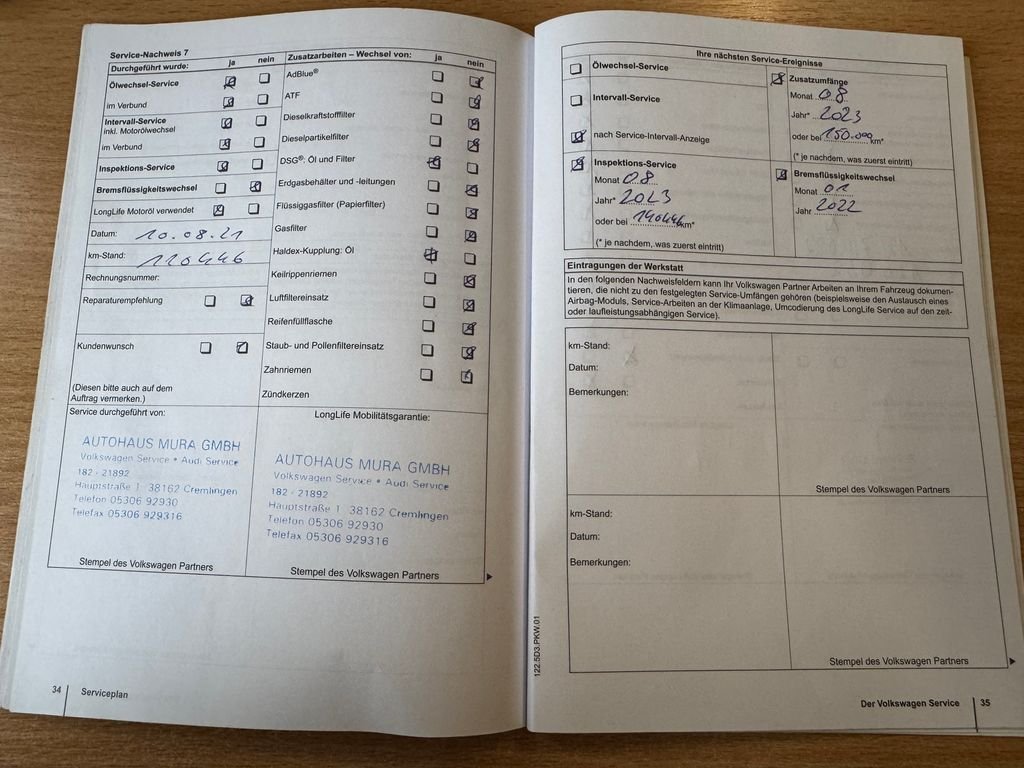 Service-Nachweis 7
Durchgeführt wurde: ja nein
Ölwechsel-Service
im Verbund
Intervall-Service
inkl. Motorölwechsel
im Verbund
Inspektions-Service
Bremsflüssigkeitswechsel
LongLife Motoröl verwendet
Datum: 10.08.21
km-Stand: 110446
Rechnungsnummer:
Reparaturempfehlung
Kundenwunsch
(Diesen bitte auch auf dem
Auftrag vermerken.)
Zusatzarbeiten – Wechsel von: ja nein
AdBlue®
ATF
Dieselkraftstofffilter
Dieselpartikelfilter
DSG®: Öl und Filter
Erdgasbehälter und -leitungen
Flüssiggasfilter (Papierfilter)
Gasfilter
Haldex-Kupplung: Öl
Keilrippenriemen
Luftfiltereinsatz
Reifenfüllflasche
Staub- und Pollenfiltereinsatz
Zahnriemen
Zündkerzen
Service durchgeführt von:
AUTOHAUS MURA GMBH
Volkswagen Service • Audi Service
182 - 21892
Hauptstraße 1 38162 Cremlingen
Telefon 05306 92930
Telefax 05306 929316
Stempel des Volkswagen Partners
LongLife Mobilitätsgarantie:
AUTOHAUS MURA GMBH
Volkswagen Service • Audi Service
182 - 21892
Hauptstraße 1 38162 Cremlingen
Telefon 05306 92930
Telefax 05306 929316
Stempel des Volkswagen Partners
34 Serviceplan
Ihre nächsten Service-Ereignisse
Ölwechsel-Service
Intervall-Service
nach Service-Intervall-Anzeige
Inspektions-Service
Monat 08
Jahr* 2023
oder bei 140446 km*
(* je nachdem, was zuerst eintritt)
Zusatzumfänge
Monat 08
Jahr* 2023
oder bei 150.000 km*
(* je nachdem, was zuerst eintritt)
Bremsflüssigkeitswechsel
Monat 01
Jahr 2022
Eintragungen der Werkstatt
In den folgenden Nachweisfeldern kann Ihr Volkswagen Partner Arbeiten an Ihrem Fahrzeug dokumen-
tieren, die nicht zu den festgelegten Service-Umfängen gehören (beispielsweise den Austausch eines
Airbag-Moduls, Service-Arbeiten an der Klimaanlage, Umcodierung des LongLife Service auf den zeit-
oder laufleistungsabhängigen Service).
km-Stand:
Datum:
Bemerkungen:
Stempel des Volkswagen Partners
km-Stand:
Datum:
Bemerkungen:
Stempel des Volkswagen Partners
122.5D3.PKW.01
Der Volkswagen Service 35